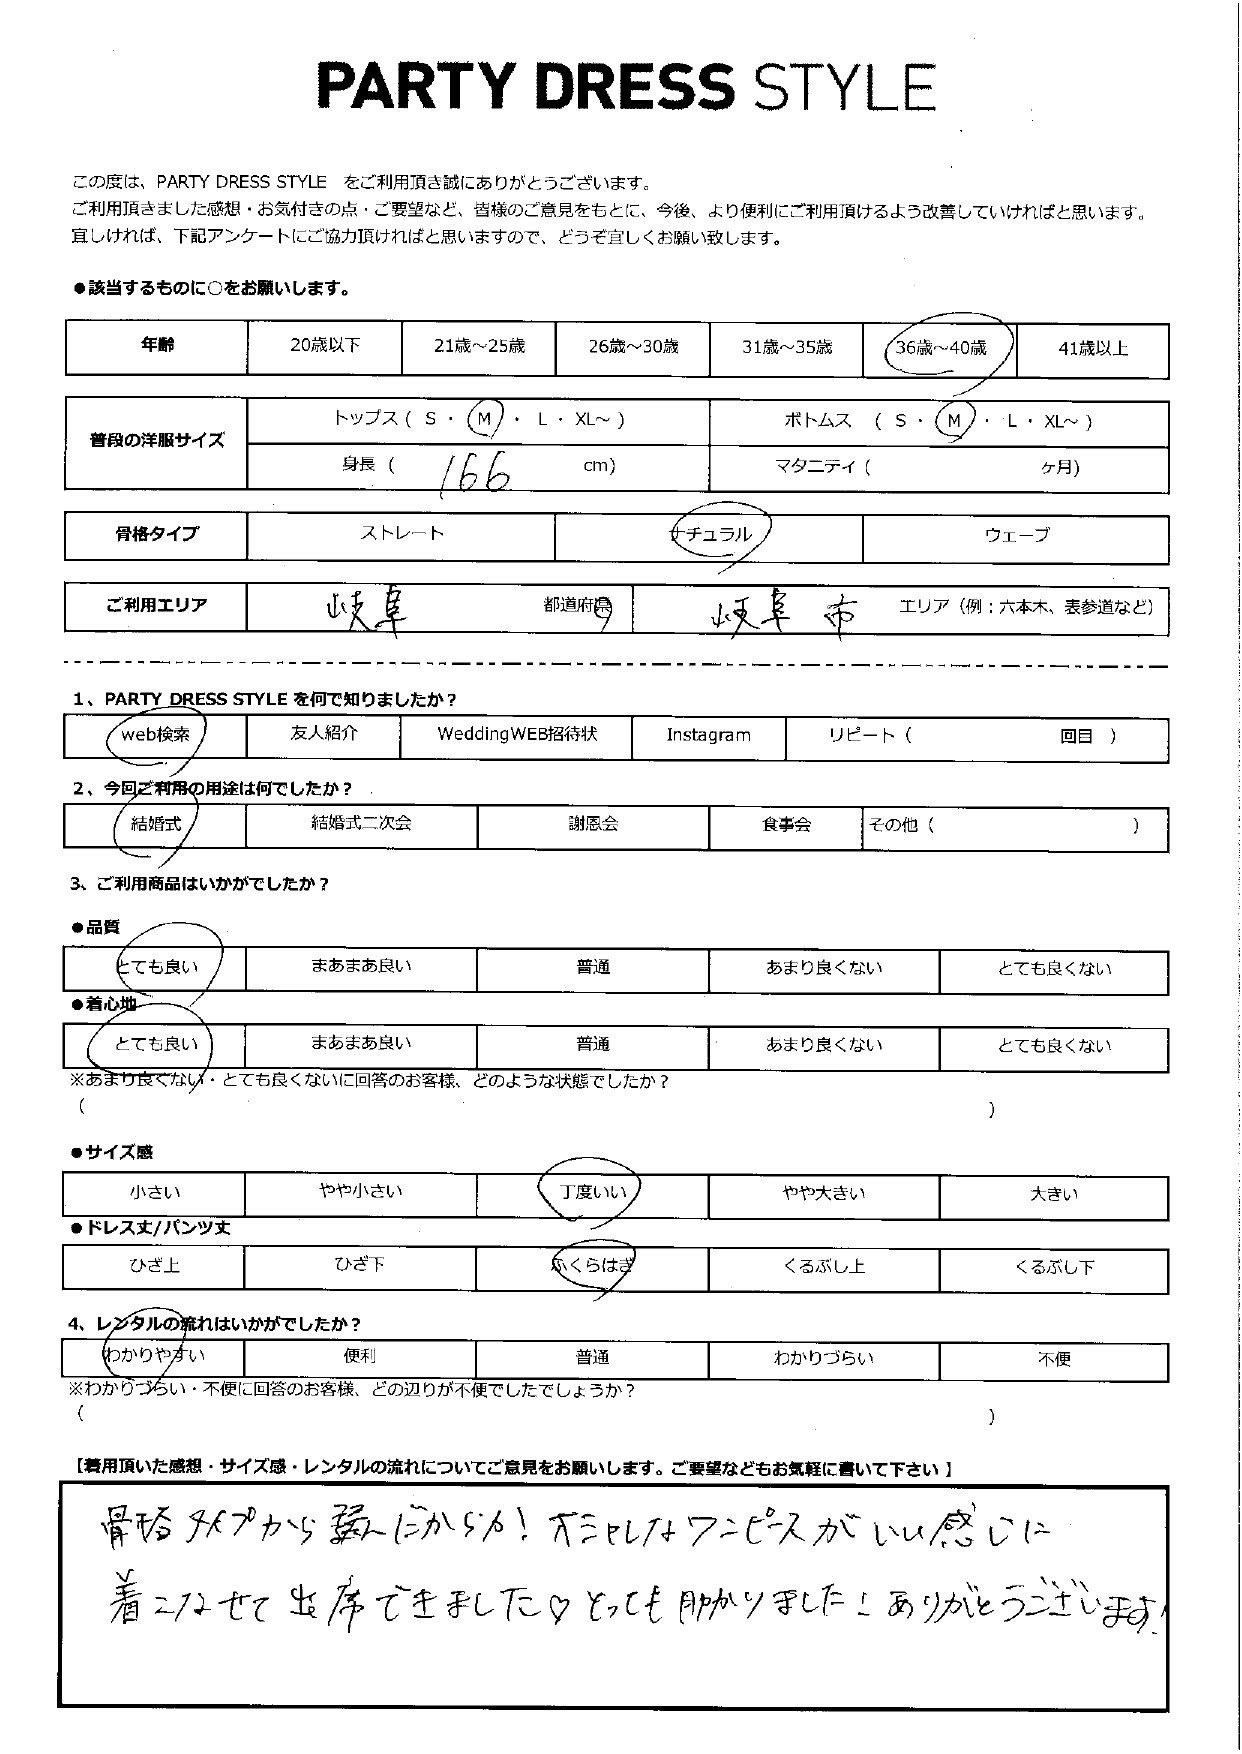 PARTY DRESS STYLE
この度は、PARTY DRESS STYLE をご利用頂き誠にありがとうございます。
ご利用頂きました感想・お気付きの点・ご要望など、皆様のご意見をもとに、今後、より便利にご利用頂けるよう改善していければと思います。
宜しければ、下記アンケートにご協力頂ければと思いますので、どうぞ宜しくお願い致します。
●該当するものに○をお願いします。
年齢 20歳以下 21歳～25歳 26歳～30歳 31歳～35歳 36歳～40歳 41歳以上
普段の洋服サイズ トップス ( S ・ M ・ L ・ XL～ ) ボトムス ( S ・ M ・ L ・ XL～ )
身長 ( 166 cm) マタニティ ( ケ月)
骨格タイプ ストレート ナチュラル ウェーブ
ご利用エリア 岐阜 都道府県 岐阜市 エリア（例：六本木、表参道など）
1、PARTY DRESS STYLE を何で知りましたか？
web検索 友人紹介 WeddingWEB招待状 Instagram リピート ( 回目 )
2、今回ご利用の用途は何でしたか？
結婚式 結婚式二次会 謝恩会 食事会 その他 ( )
3、ご利用商品はいかがでしたか？
●品質
とても良い まあまあ良い 普通 あまり良くない とても良くない
●着心地
とても良い まあまあ良い 普通 あまり良くない とても良くない
※あまり良くない・とても良くないに回答のお客様、どのような状態でしたか？
( )
●サイズ感
小さい やや小さい 丁度いい やや大きい 大きい
●ドレス丈/パンツ丈
ひざ上 ひざ下 ふくらはぎ くるぶし上 くるぶし下
4、レンタルの流れはいかがでしたか？
わかりやすい 便利 普通 わかりづらい 不便
※わかりづらい・不便に回答のお客様、どの辺りが不便でしたでしょうか？
( )
【着用頂いた感想・サイズ感・レンタルの流れについてご意見をお願いします。ご要望などもお気軽に書いて下さい】
骨格タイプから選んだからか！オシャレなワンピースがいい感じに
着こなせて出席できました♡とっても助かりました！ありがとうございます！